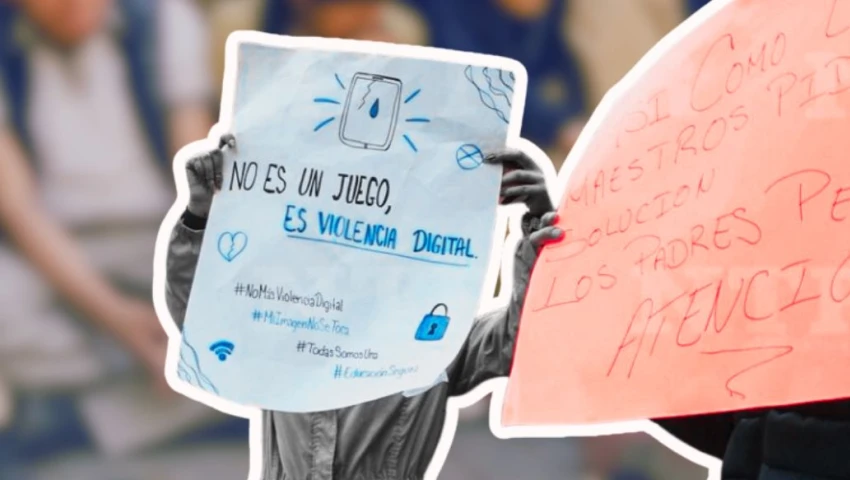 NO ES UN JUEGO,
ES VIOLENCIA DIGITAL.
#NoMásViolenciaDigital
#MiImagenNoSeToca
#TodasSomosUna
#EducaciónSegura
ASI COMO
MAESTROS PID
SOLUCION
LOS PADRES PE
ATENCIO